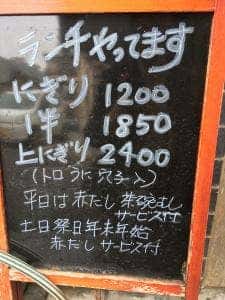 ランチやってます
にぎり 1200
1半 1850
上にぎり 2400
(トロ うに 穴子入)
平日は 赤だし 茶碗むし
サービス付
土日祭日年末年始
赤だし サービス付